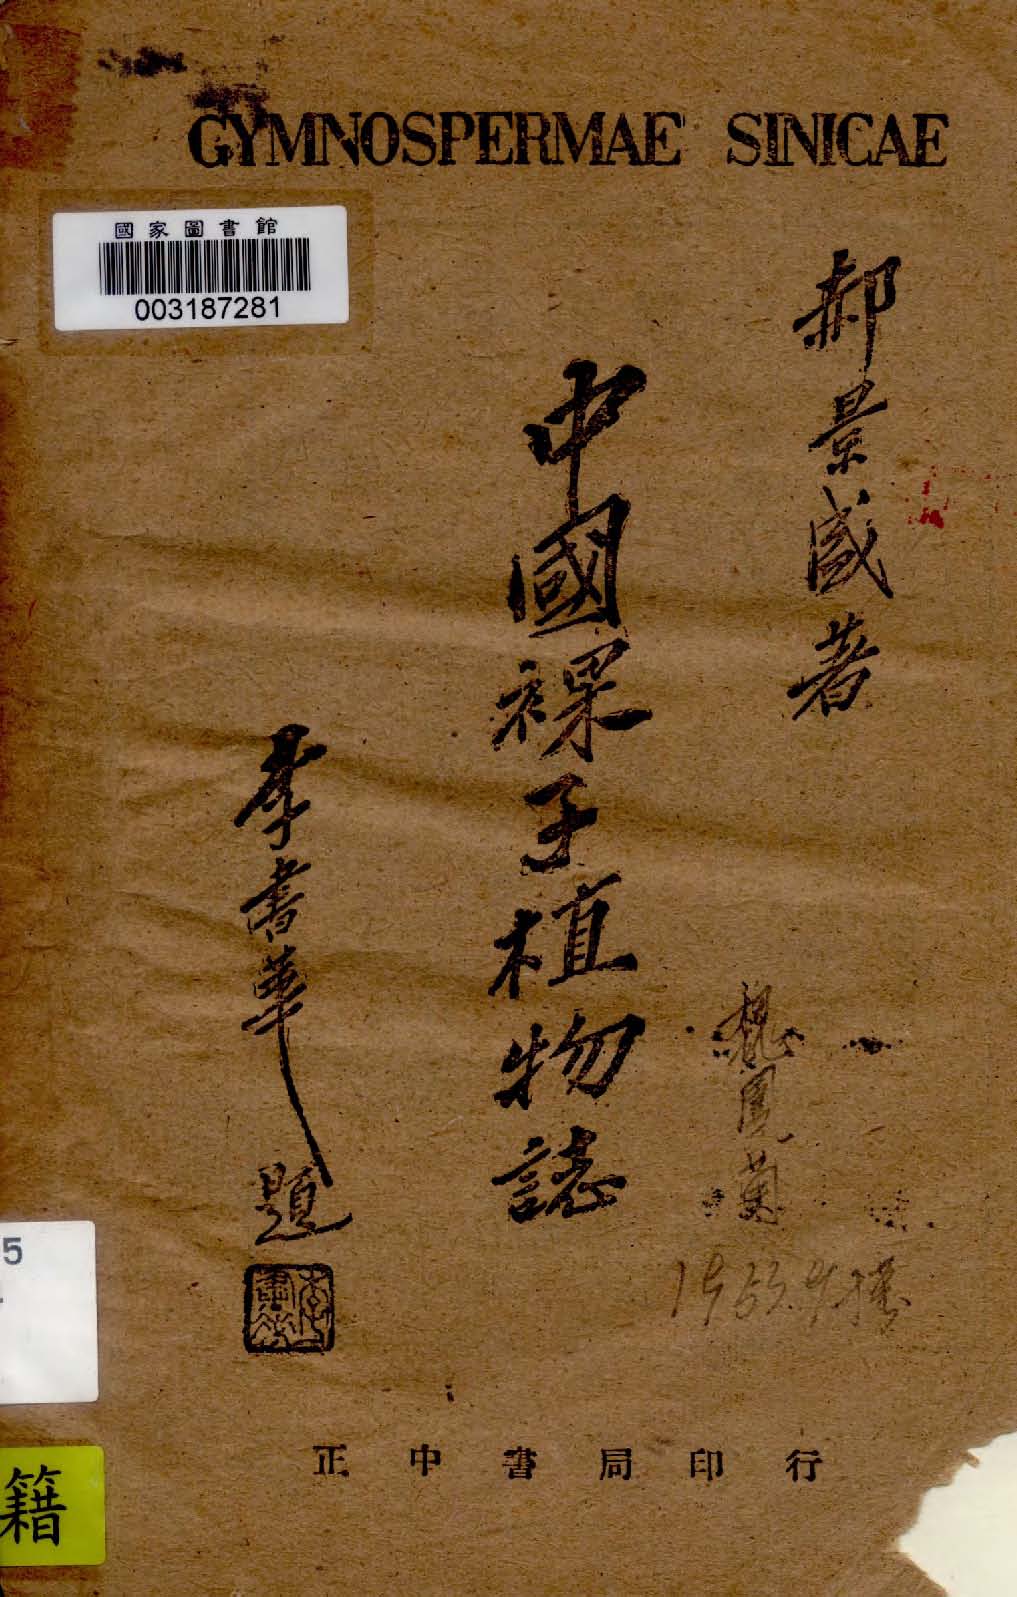 GYMNOSPERMAE SINICAE
國家圖書館
003187281
郝景盛著
中國裸子植物誌
李書華題
李書華
1963.9.
5
正中書局印行
籍